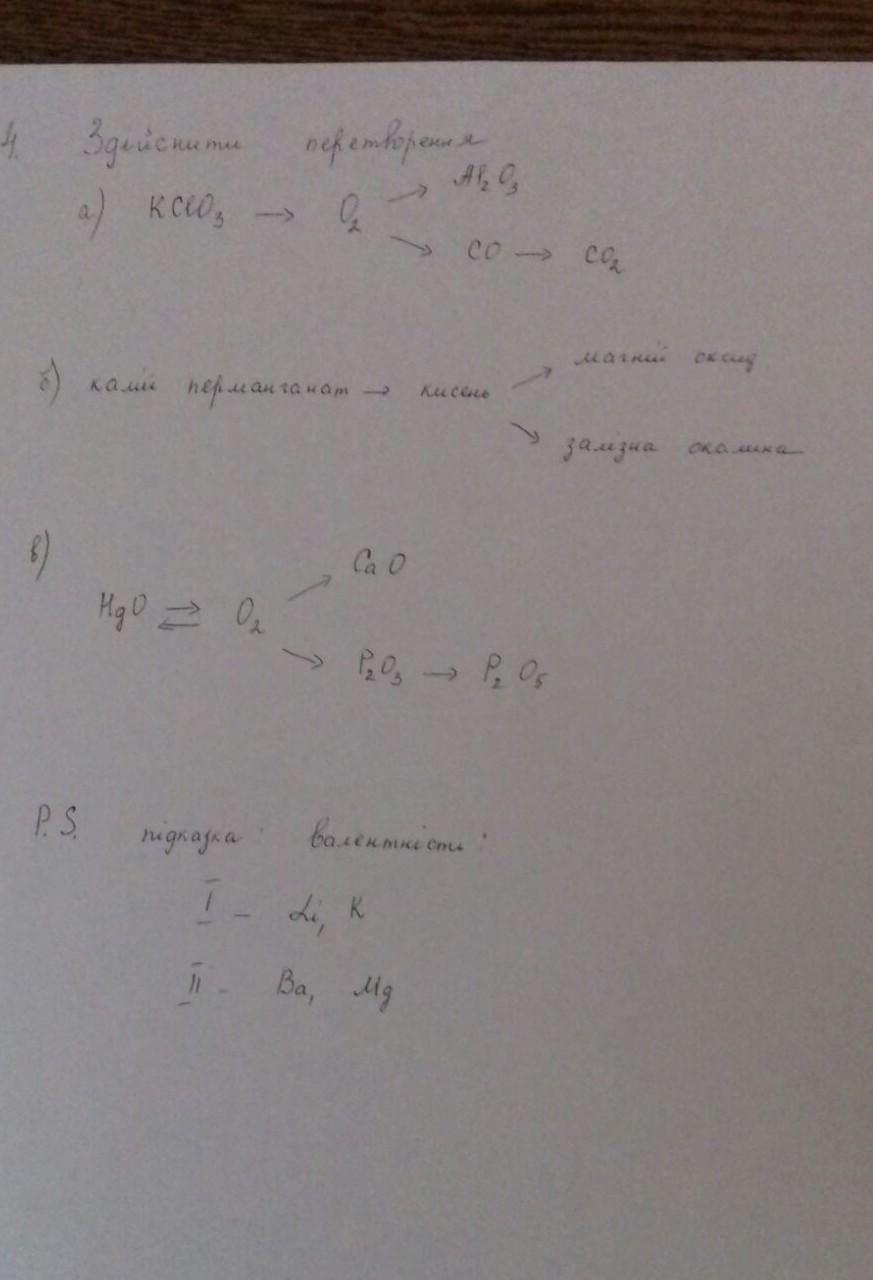 4. Здійснити перетворення
а) KClO₃ → O₂ ↗ Al₂O₃
↘ CO → CO₂
б) калій перманганат → кисень ↗ магній оксид
↘ залізна окалина
в)
HgO ⇄ O₂ ↗ CaO
↘ P₂O₃ → P₂O₅
P.S. підказка: валентність:
I – Li, K
II – Ba, Mg